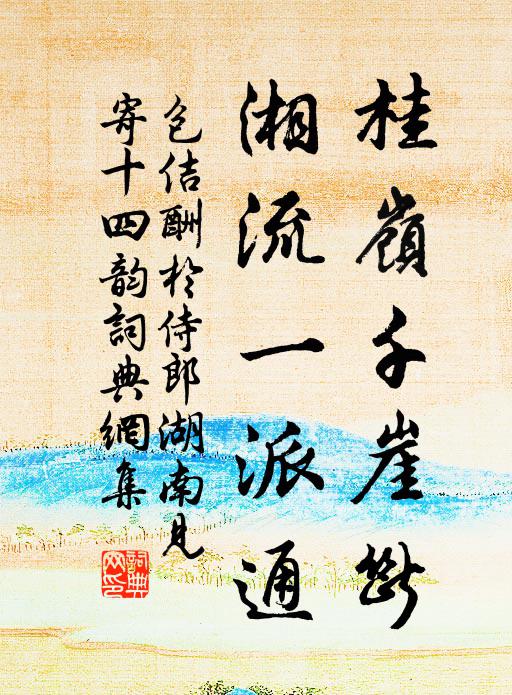 桂嶺千崖斷
湘流一派通
包佶酬於侍郎湖南見
寄十四韵詞典網集
詞典网印